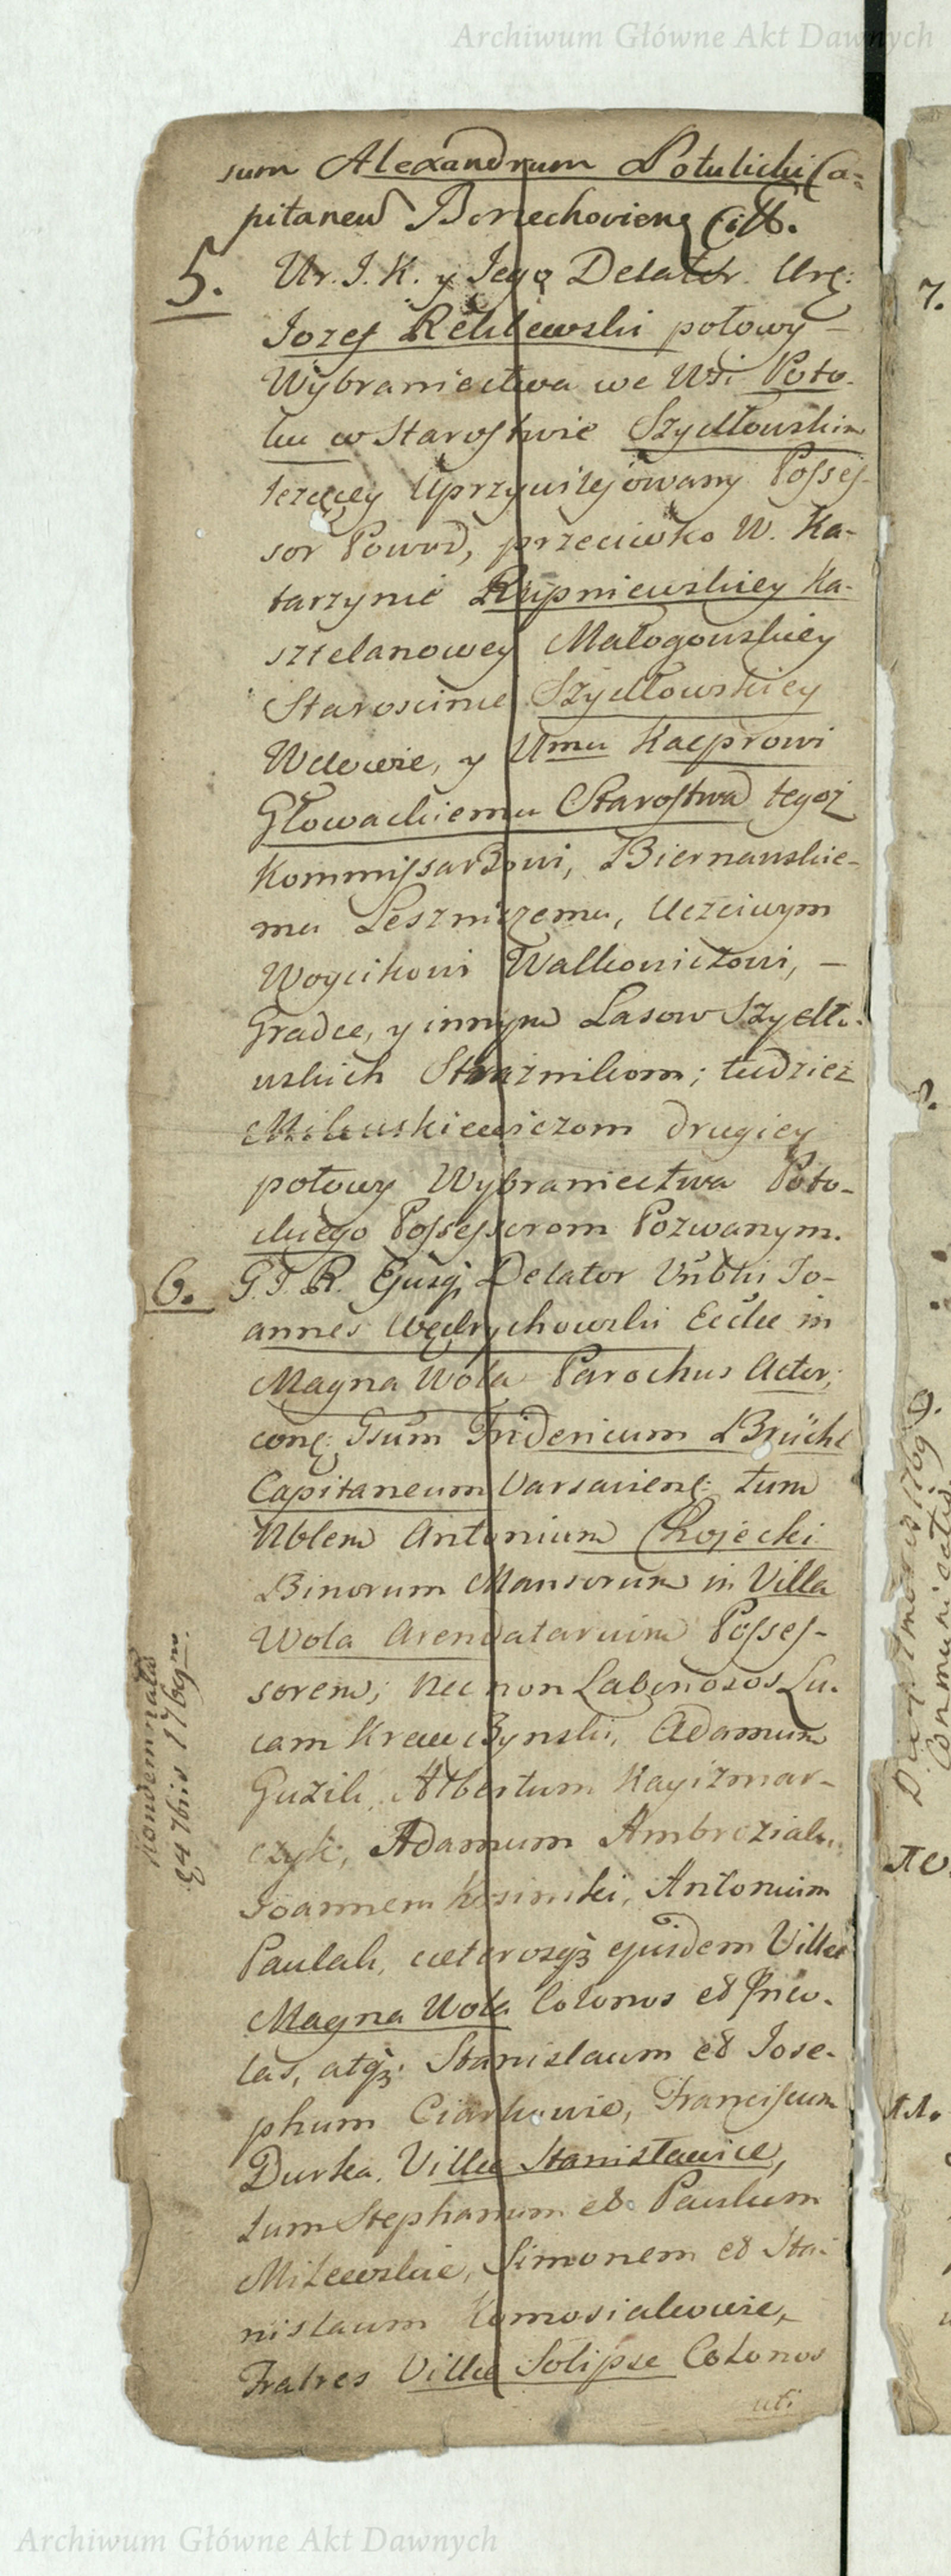 Archiwum Główne Akt Dawnych
sum Alexandrum Potulicki Ca-
pitaneu Borzechoviens Citt.
5. Ur. I. K. y Jego Delator Urę:
Jozef Reklewski połowy –
Wybraniectwa we Wsi Poto-
ku w Starostwie Szydłowskim
lezęcey Uprzywilejowany Posses-
sor Powod, przeciwko W. Ka-
tarzynie Rupniewskiey Ka-
sztelanowey Małogouskiey
Staroscinie Szydłowskiey
Wdowie, y Umu Kacprowi
Głowackiemu Starostwa tegoż
Kommissarzowi, Biernauskie-
mu Leszniczemu, Uczciwym
Woycikowi Walkowiczowi, –
Gradce, y innym Lasow Szydło-
uskich Strażnikom; tudzież
Miluskiewiczom drugiey
połowy Wybraniectwa Poto-
ckiego Possessorom Pozwanym.
6. G. I. R. Ejusq Delator Vnblis Jo-
annes Wędrychowski Eccle in
Magna Wola Parochus Actor;
conę: Gsum Fridericum Brücht
Capitaneum Varsavienę: tum
Nblem Antonium Chojecki
Binorum Mansorum in Villa
Wola Arendatarium Posses-
sorem; nec non Laboriosos Lu-
cam Krawczynski, Adamum
Guzik, Albertum Kayizmar-
czyk, Adamum Ambroziak,
Joannem Kosinski, Antonium
Paulak, caeterosqz ejusdem Villae
Magna Wola Colonos et Inco-
las, atqz. Stanislaum et Jose-
phum Ciarkowie, Franciscum
Durka, Villae Stanisławice,
tum Stephanum et Paulum
Milewskie, Simonem et Sta-
nislaum Komosiakowie,
Fratres Villae Solipse Colonos
uti
Kondemnata
24 7bris 176
7.
8.
9.
Communicatur
Archiwum Główne Akt Dawnych